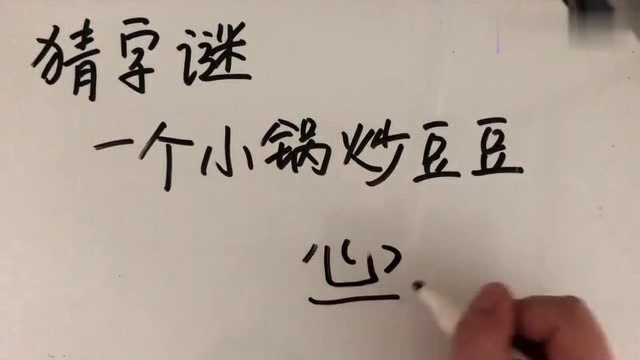 猜字谜
一个小锅炒豆豆
心